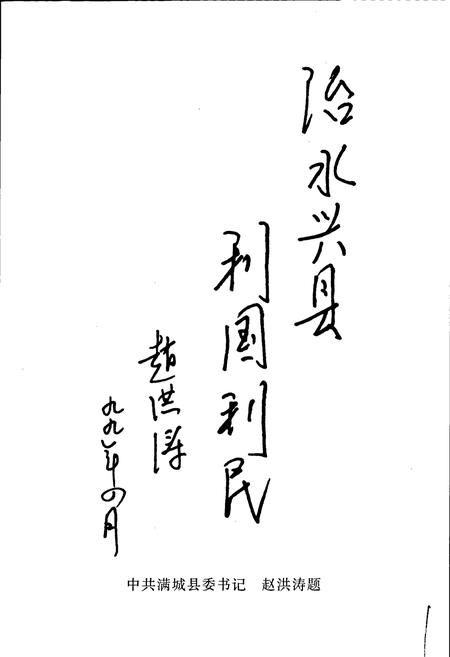 治水兴县
利国利民
赵洪涛
九九八年四月
中共满城县委书记　赵洪涛题